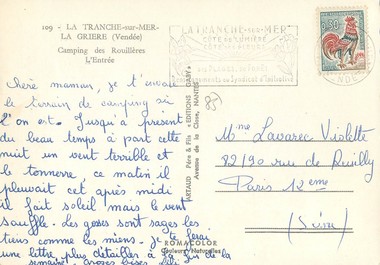 109 - LA TRANCHE-sur-MER-
LA GRIERE (Vendée)
Camping des Rouillères
L'Entrée
LA TRANCHE SUR MER
CÔTE DE LUMIÈRE
CÔTE DES FLEURS
SA PLAGE, SA FORÊT
Renseignements au Syndicat d'Initiative
0,25
Chère maman, je t'envoie
le terrain de camping où
l'on est. Jusqu'à présent
du beau temps à part cette
nuit un vent terrible et
le tonnerre, ce matin il
pleuvait cet après midi
il fait soleil mais le vent
souffle. Les gosses sont sages les
tiens comme les miens. je te ferai
une lettre plus détailler à la fin de la
semaine. Grosses bises
ARTAUD Père & Fils « EDITIONS GABY »
Avenue de la Close, NANTES
85
Mme Lavarec Violette
82190 rue de Reuilly
Paris 12eme
(Seine)
ROMACOLOR
Couleurs Naturelles